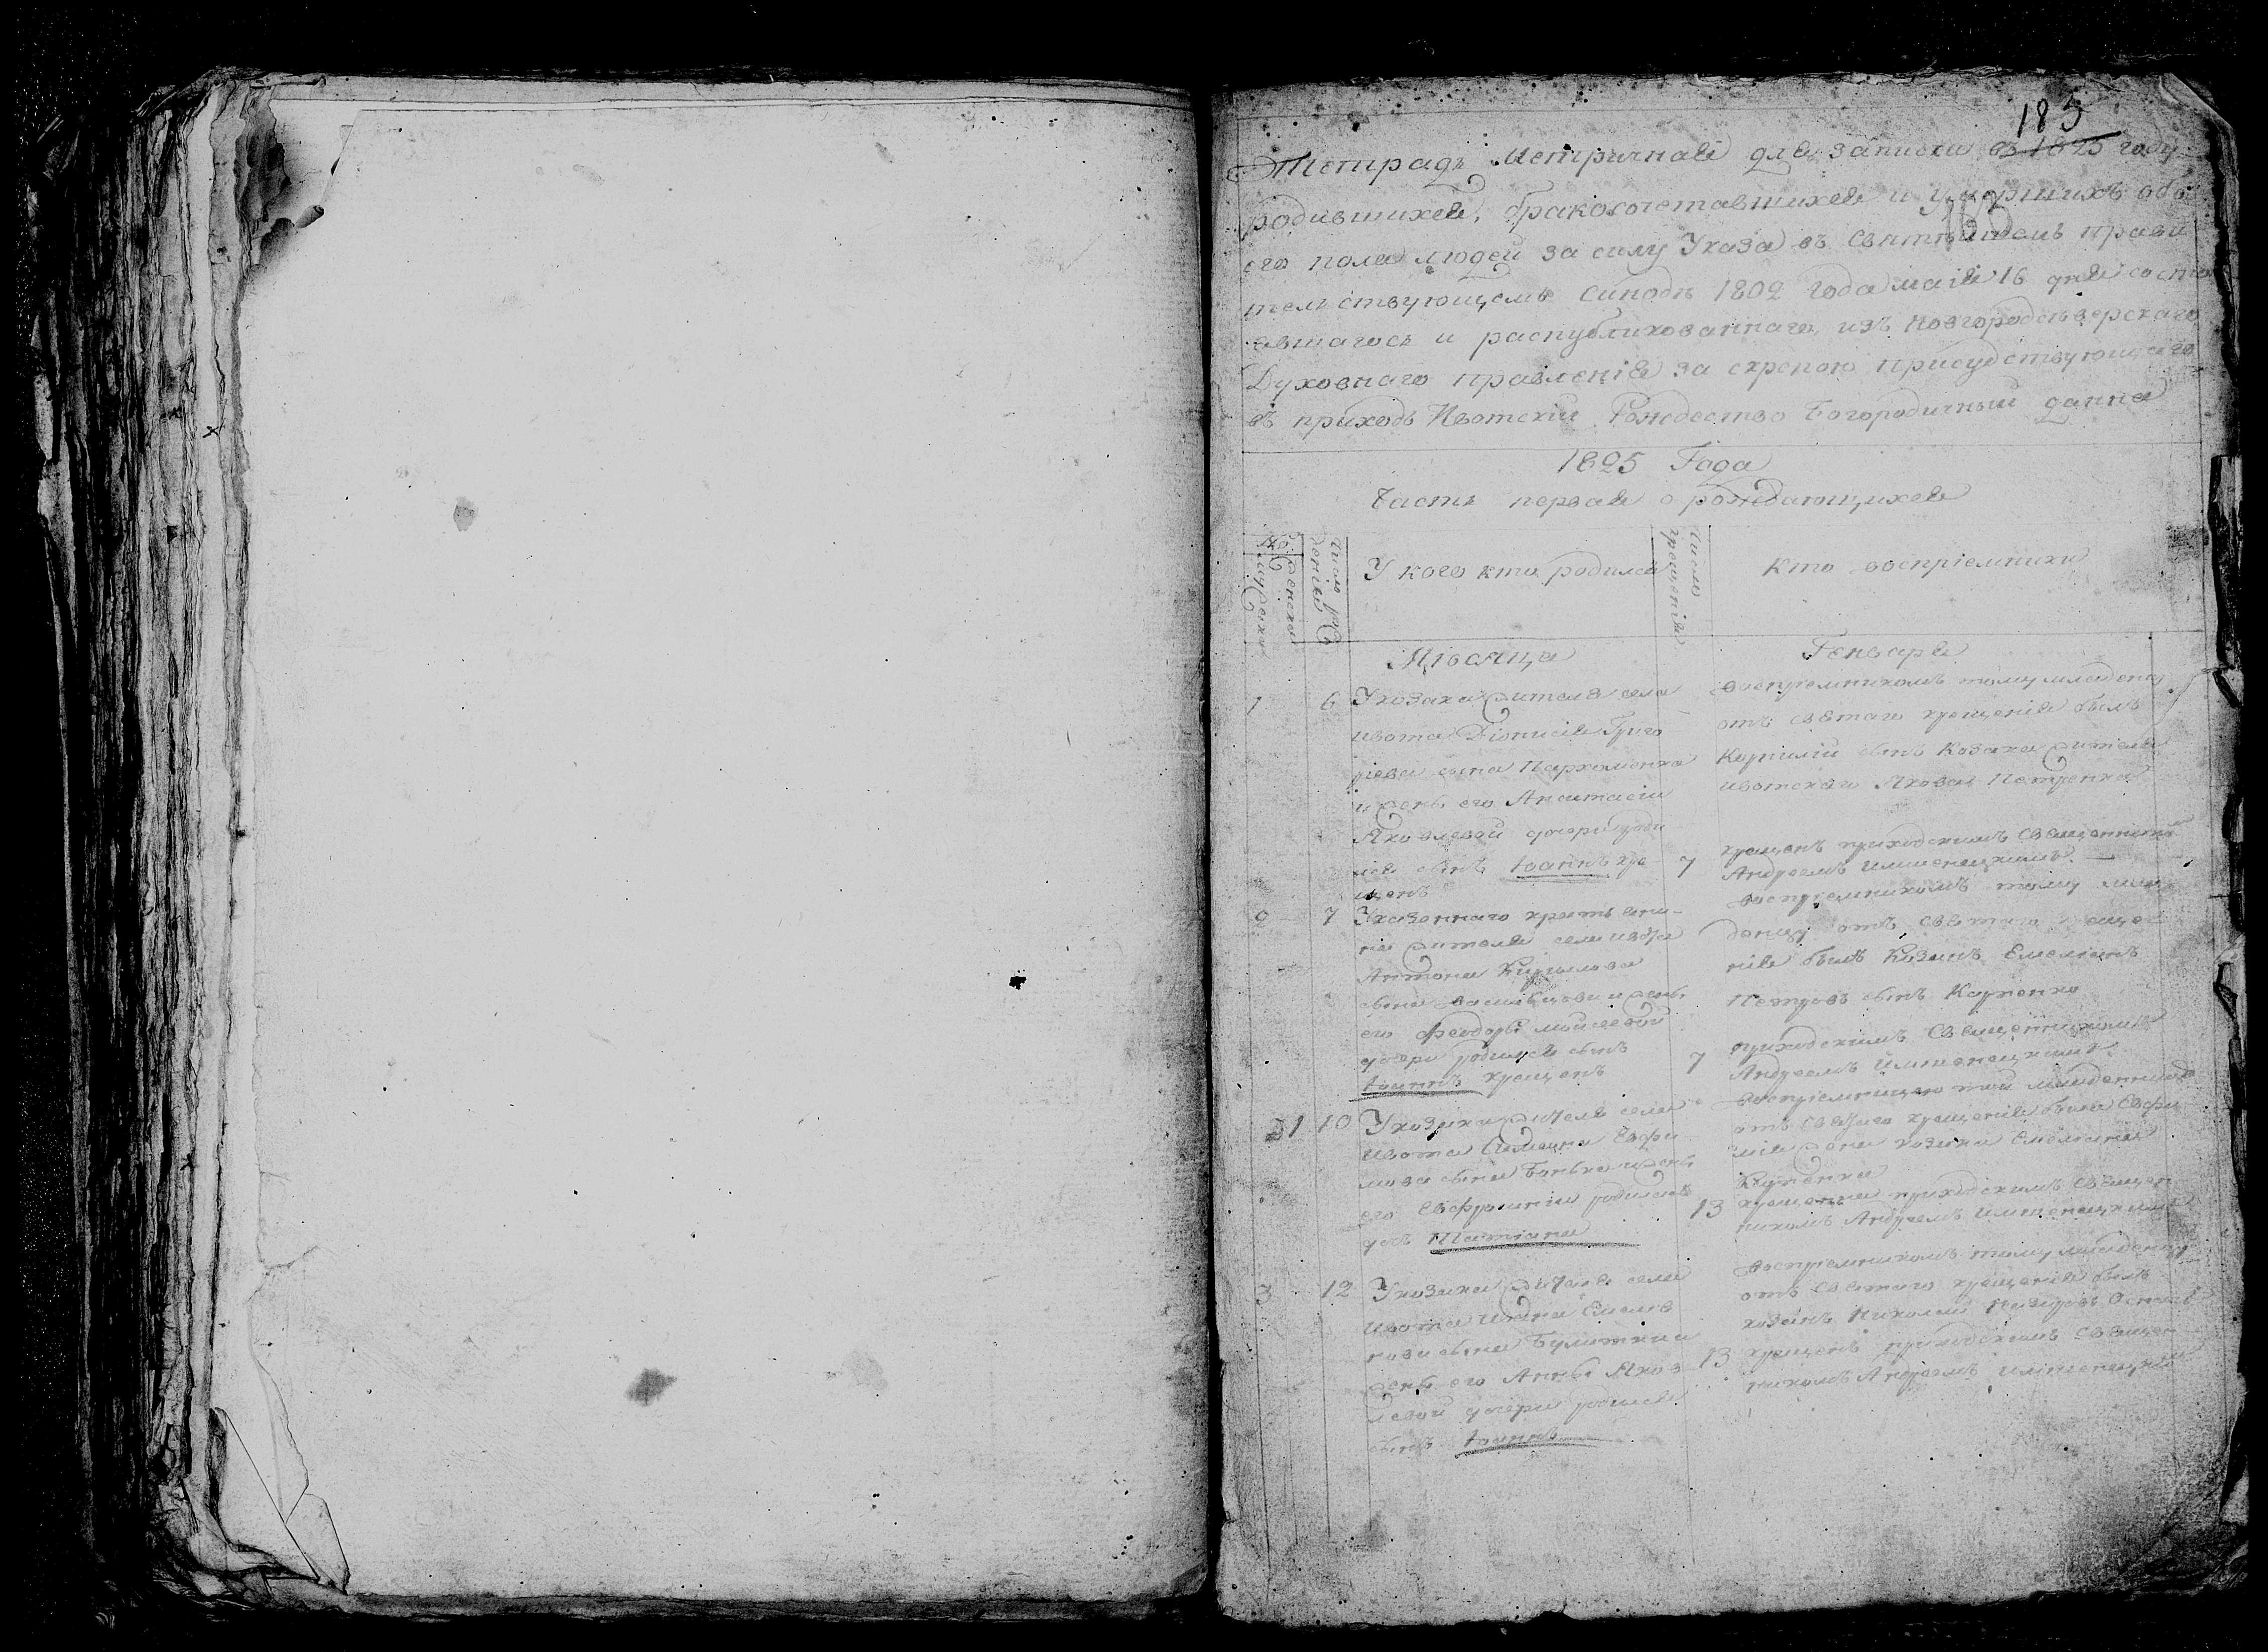 185
Тетрадь Метричная для записки въ 1825 году
родившихся, бракосочетавшихся и умершихъ обо
его пола людей за силу Указа въ Святѣйшемъ прави
тельствующемъ Синодѣ 1802 года маія 16 дня состо
явшагось и распубликованнаго, изъ Новгородсѣверскаго
Духовнаго правленія за скрепою присудствующаго
въ приходъ Ивотскій Рождество Богородичный данна
1825 Года
Часть первая о рождающихся
Женска
Мужеска
Число рож
денія
У кого кто родился
Число
крещенія
Кто воспріемники
Мѣсяца
Генваря
1
6
У козака жителя села
Ивота Діонисія Григо
ріева сына Пархоменка
и жены его Анастасіи
Яковлевой дочери роди
лся сынъ Іоаннъ кре
щенъ
7
воспріемникомъ тому младенцу
отъ святаго крещенія былъ
Корнилій сынъ Козака жителя
ивотскаго Якова Петренка
крещенъ приходскимъ Священникомъ
Андреемъ
2
7
У казеннаго крестьяни
на жителя села Ивота
Антона Кириллова
сына и жены
его Феодоры Моисеевой
дочери родился сынъ
Іоаннъ крещенъ
7
воспріемникомъ тому мла
денцу отъ святаго креще
нія былъ Козакъ Емеліянъ
Петровъ сынъ
приходскимъ Священникомъ
Андреемъ
1
10
У козака жителя села
Ивота Симеона Евфи
мова сына и жены
его Евфросиніи родилась
дочь Татіана
13
воспріемницею той младенице
отъ святаго крещенія была Евфи
мія жена козака Емеліана
крещенна приходскимъ Священ
никомъ Андреемъ
3
12
У козака жителя села
Ивота Емелія
нова сына
жены его Анны Яков
левой дочери родился
сынъ Іоаннъ
13
воспріемникомъ тому младенцу
отъ святаго крещенія былъ
козакъ Николай
крещенъ приходскимъ Священ
никомъ Андреемъ